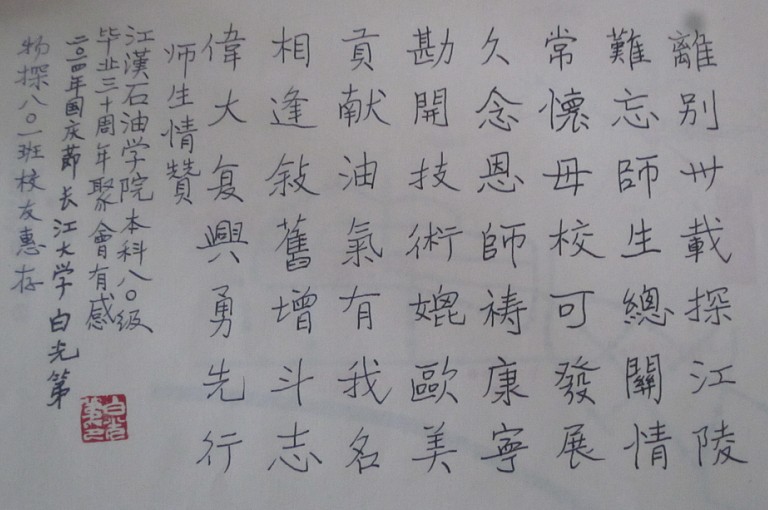 離別卅載探江陵
難忘師生總關情
常懷母校可發展
久念恩師祷康寧
勘開技術媲歐美
貢献油氣有我名
相逢敍舊增斗志
偉大复興勇先行
师生情贊
江漢石油学院本科八〇级
毕业三十周年聚會有感
二〇一四年国庆節长江大学白光第
物探八〇一班校友惠存
白光第印